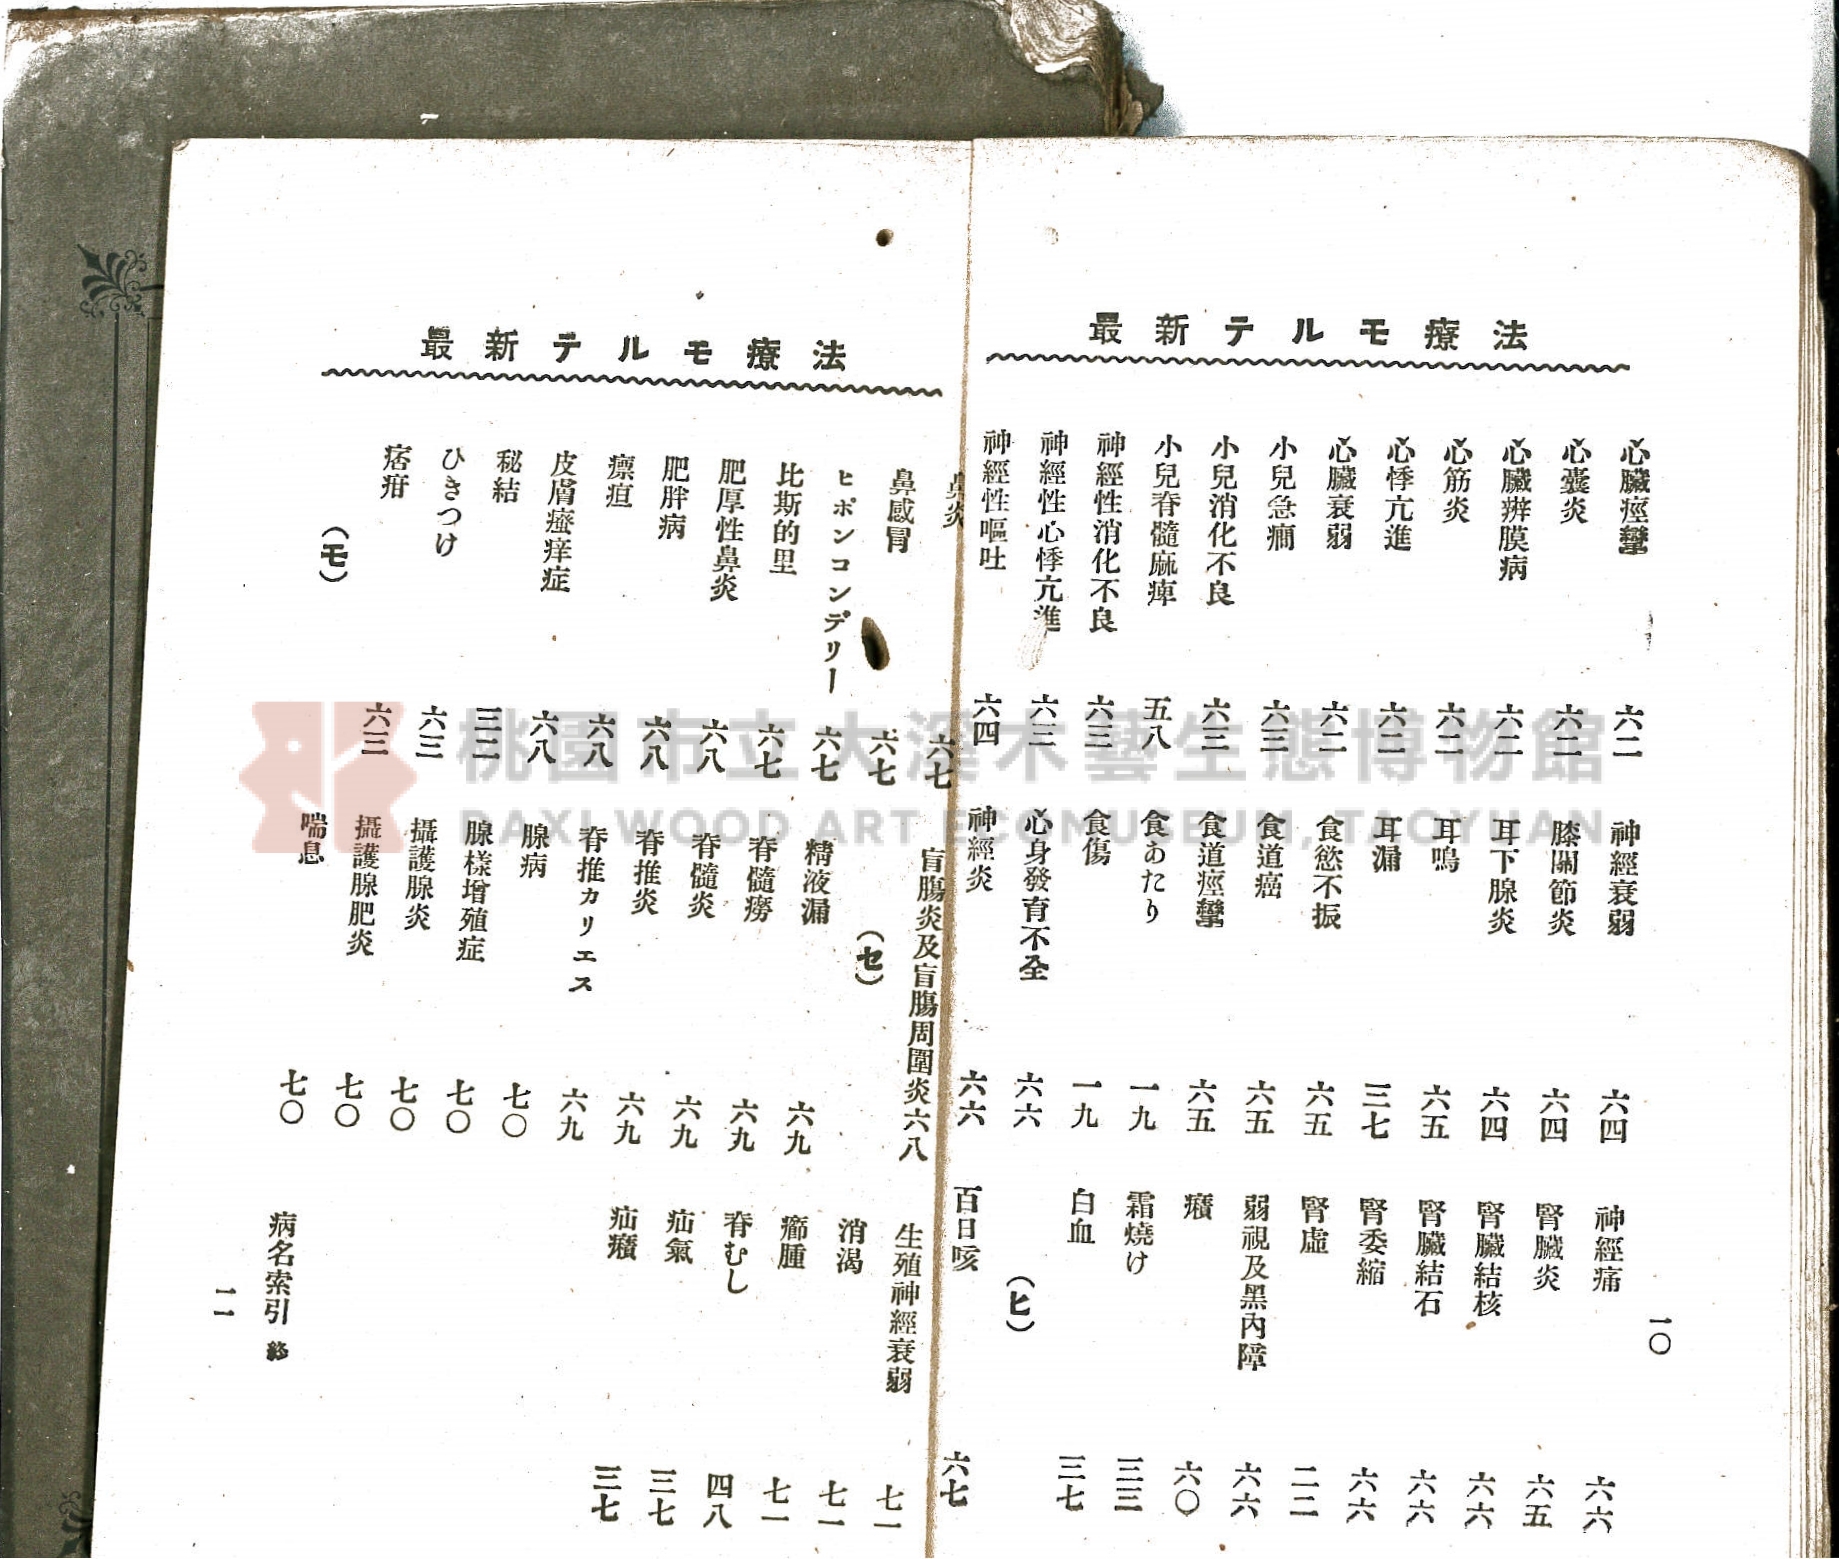 最新テルモ療法
心臟痙攣 六二
心囊炎 六二
心臟辨膜病 六二
心筋炎 六二
心悸亢進 六二
心臟衰弱 六二
小兒急癇 六三
小兒消化不良 六三
小兒脊髓麻痺 五八
神經性消化不良 六三
神經性心悸亢進 六三
神經性嘔吐 六四
神經衰弱 六四
膝關節炎 六四
耳下腺炎 六四
耳鳴 六五
耳漏 三七
食慾不振 六五
食道癌 六五
食道痙攣 六五
食あたり 一九
食傷 一九
心身發育不全 六六
神經炎 六六
神經痛 六六
腎臟炎 六五
腎臟結核 六六
腎臟結石 六六
腎委縮 六六
腎虛 二二
弱視及黑內障 六六
癪 六〇
霜燒け 三三
白血 三七
（ヒ）
百日咳 六七
一〇
最新テルモ療法
鼻炎 六七
鼻感冒 六七
ヒポンコンデリー 六七
比斯的里 六七
肥厚性鼻炎 六八
肥胖病 六八
瘭疽 六八
皮膚瘙痒症 六八
秘結 三二
ひきつけ 六三
痞疳 六三
（モ）
盲腸炎及盲腸周圍炎 六八
（セ）
精液漏 六九
脊髓癆 六九
脊髓炎 六九
脊推炎 六九
脊推カリエス 六九
腺病 七〇
腺樣增殖症 七〇
攝護腺炎 七〇
攝護腺肥炎 七〇
喘息 七〇
生殖神經衰弱 七一
消渴 七一
癤腫 七一
脊むし 四八
疝氣 三七
疝癪 三七
病名索引 終
一一
桃園市立大溪木藝生態博物館
DAXI WOOD ART ECOMUSEUM, TAOYUAN